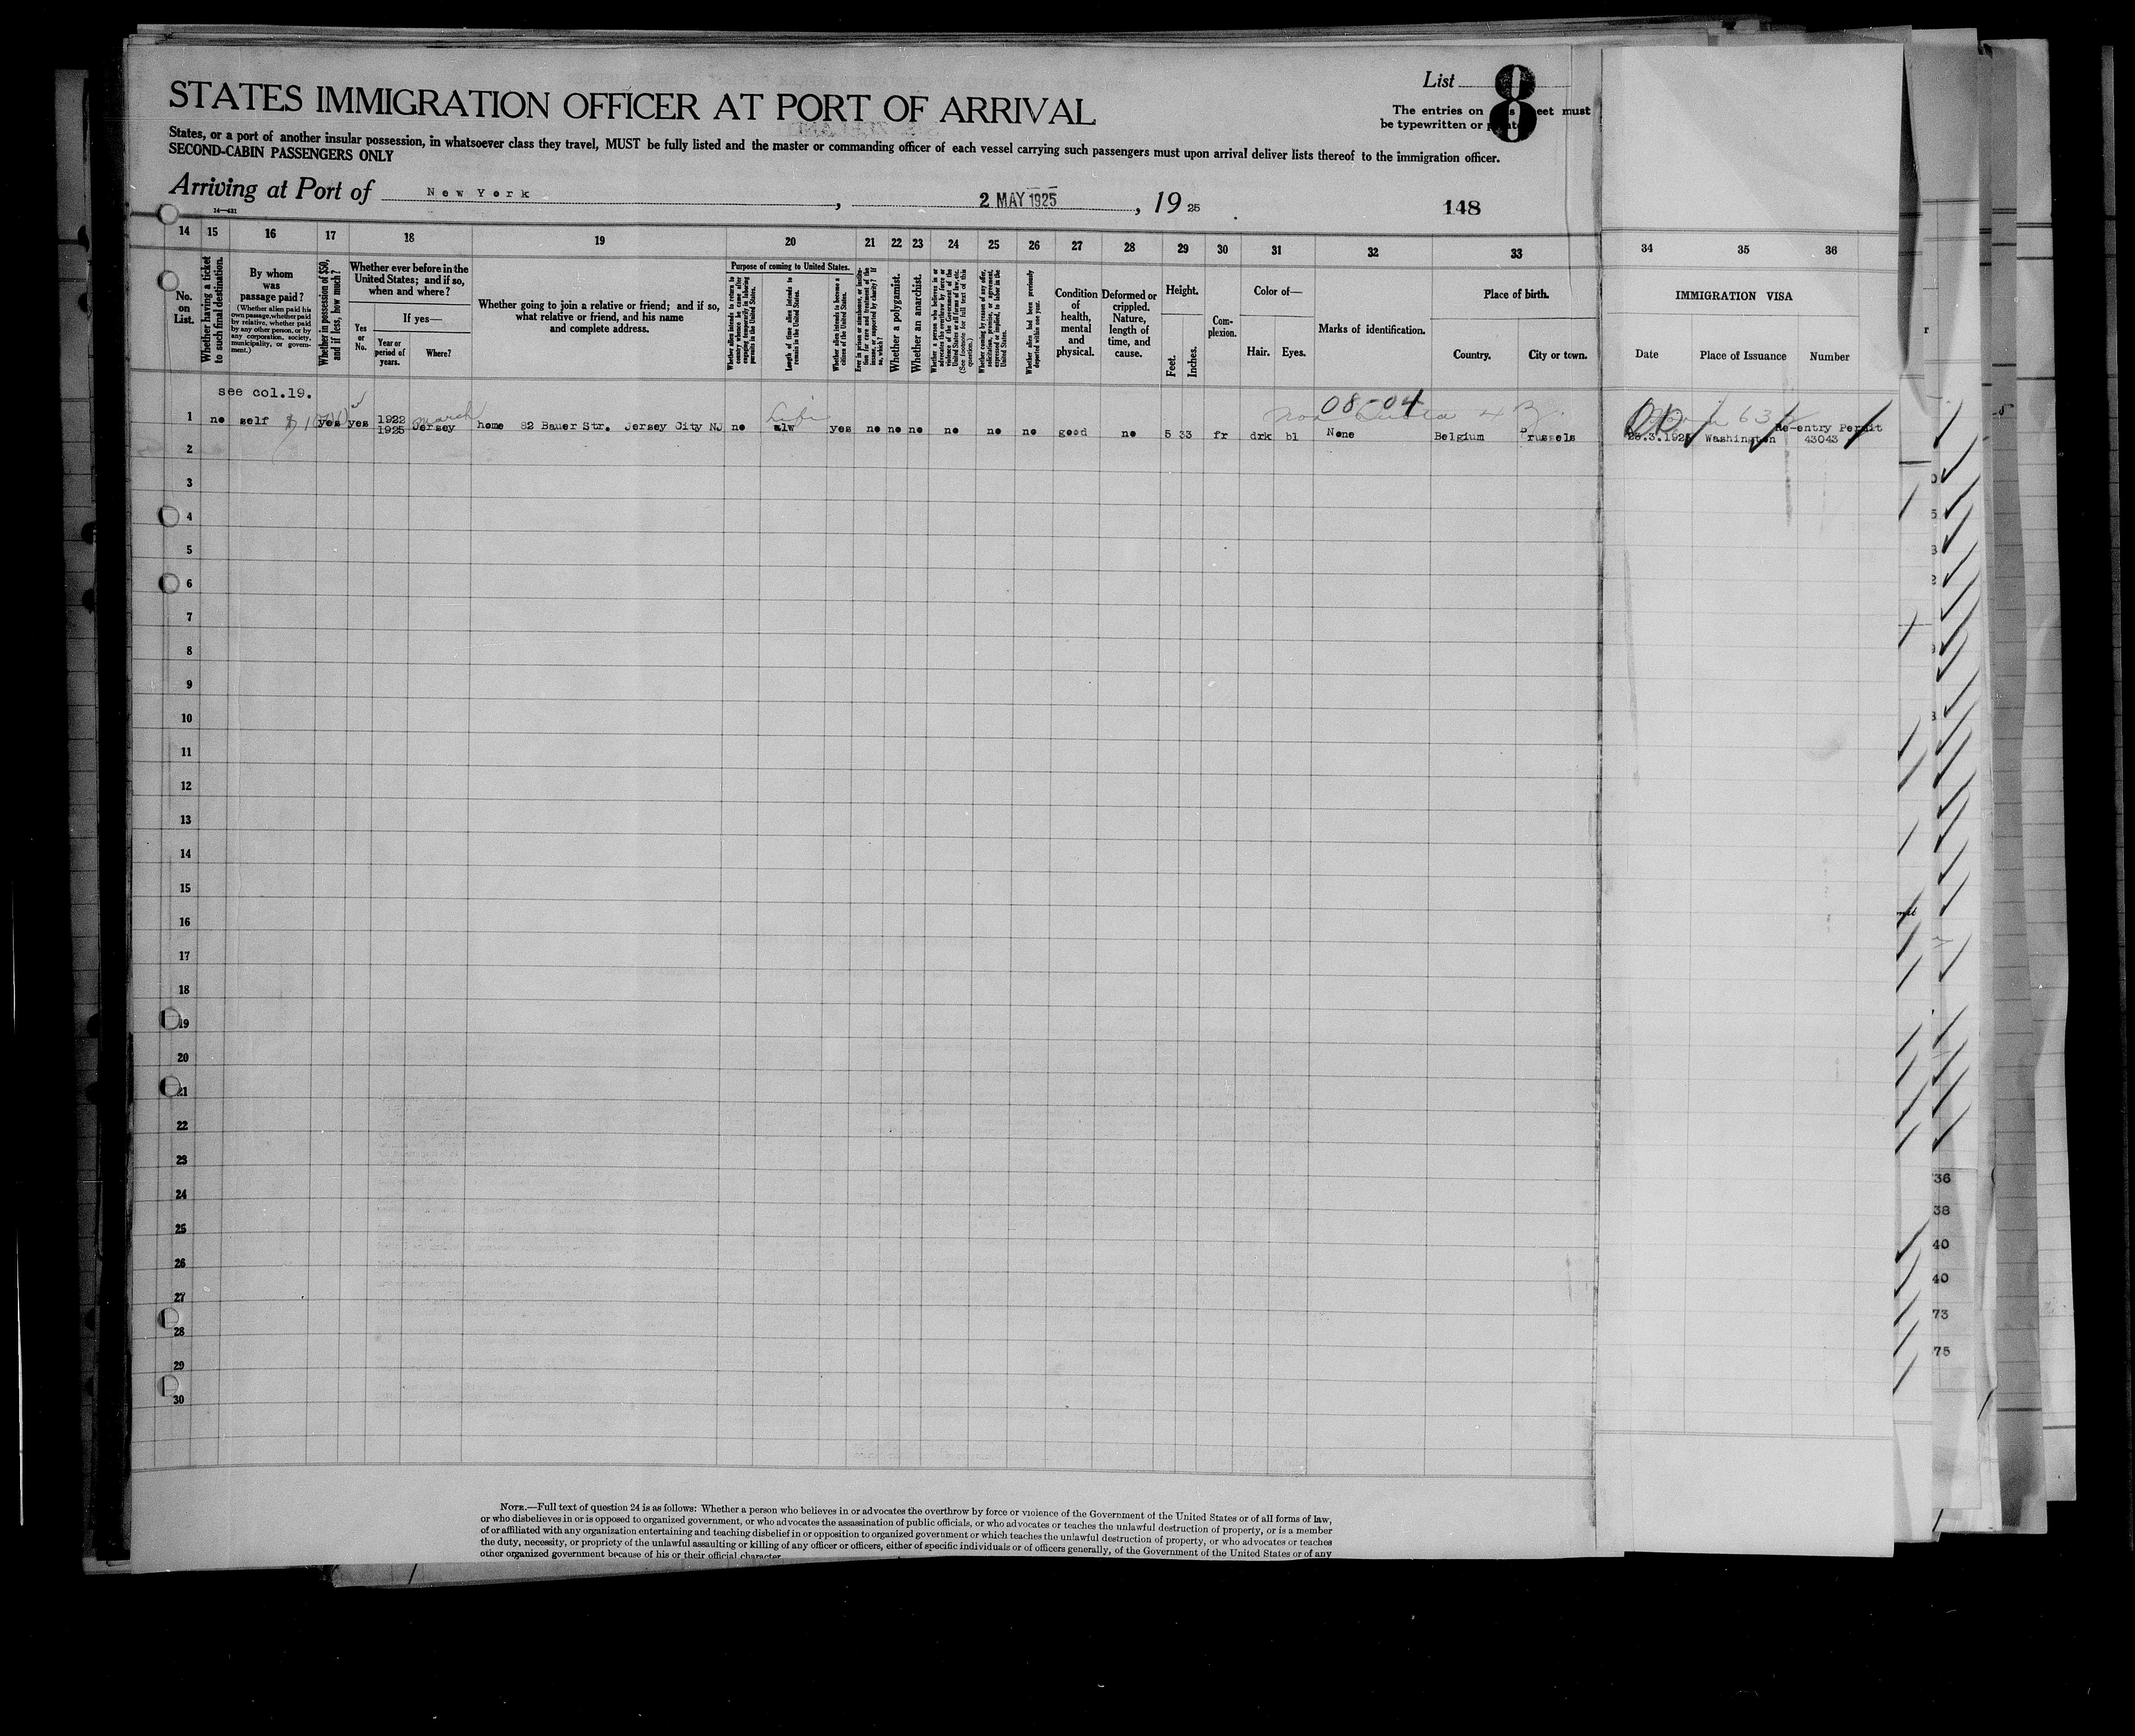 STATES IMMIGRATION OFFICER AT PORT OF ARRIVAL
List 8
The entries on eet must
be typewritten or
States, or a port of another insular possession, in whatsoever class they travel, MUST be fully listed and the master or commanding officer of each vessel carrying such passengers must upon arrival deliver lists thereof to the immigration officer.
SECOND-CABIN PASSENGERS ONLY
Arriving at Port of New York, 2 MAY 1925, 19 25
148
14—431
14 15 16 17 18 19 20 21 22 23 24 25 26 27 28 29 30 31 32 33 34 35 36
No. on List.
Whether having a ticket to such final destination.
By whom was passage paid?
(Whether alien paid his own passage, whether paid by relative, whether paid by any other person, or by any corporation, society, municipality, or government.)
Whether in possession of $50, and if less, how much?
Whether ever before in the United States; and if so, when and where?
Yes or No.
If yes—
Year or period of years.
Where?
Whether going to join a relative or friend; and if so, what relative or friend, and his name and complete address.
Purpose of coming to United States.
Whether alien intends to return to country whence he came after engaging temporarily in laboring pursuits in the United States.
Length of time alien intends to remain in the United States.
Whether alien intends to become a citizen of the United States.
Ever in prison or almshouse, or institution for care and treatment of the insane, or supported by charity? If so, which?
Whether a polygamist.
Whether an anarchist.
Whether a person who believes in or advocates the overthrow by force or violence of the Government of the United States or all forms of law, etc. (See footnote for full text of this question.)
Whether coming by reason of any offer, solicitation, promise, or agreement, expressed or implied, to labor in the United States.
Whether alien had been previously deported within one year.
Condition of health, mental and physical.
Deformed or crippled. Nature, length of time, and cause.
Height.
Feet. Inches.
Complexion.
Color of—
Hair. Eyes.
Marks of identification.
Place of birth.
Country. City or town.
IMMIGRATION VISA
Date Place of Issuance Number
see col.19.
08-04
1 no self yes yes 1922 1925 March Jersey home 82 Bauer Str. Jersey City NJ no Life alw yes no no no no no no good no 5 33 fr drk bl None Belgium Brussels Washington Re-entry Permit 43043
2
3
4
5
6
7
8
9
10
11
12
13
14
15
16
17
18
19
20
21
22
23
24
25
26
27
28
29
30
36
38
40
40
73
75
NOTE.—Full text of question 24 is as follows: Whether a person who believes in or advocates the overthrow by force or violence of the Government of the United States or of all forms of law,
or who disbelieves in or is opposed to organized government, or who advocates the assassination of public officials, or who advocates or teaches the unlawful destruction of property, or is a member
of or affiliated with any organization entertaining and teaching disbelief in or opposition to organized government or which teaches the unlawful destruction of property, or who advocates or teaches
the duty, necessity, or propriety of the unlawful assaulting or killing of any officer or officers, either of specific individuals or of officers generally, of the Government of the United States or of any
other organized government because of his or their official character.